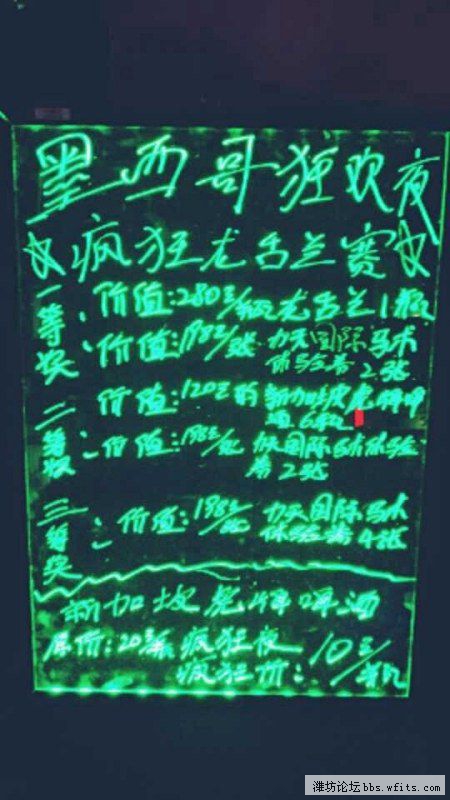 墨西哥狂欢夜
疯狂龙舌兰赛
一等奖:价值:280元/瓶龙舌兰1瓶
价值:198元/张 力天国际马术
体验券2张
二等奖:价值:120元的 新加坡虎牌啤
酒6瓶
价值:198元/张 力天国际马术体验
券2张
三等奖:价值:198元/张 力天国际马术
体验券4张
新加坡虎牌啤酒
原价:20元/瓶 疯狂夜
疯狂价:10元/瓶
潍坊论坛bbs.wfits.com